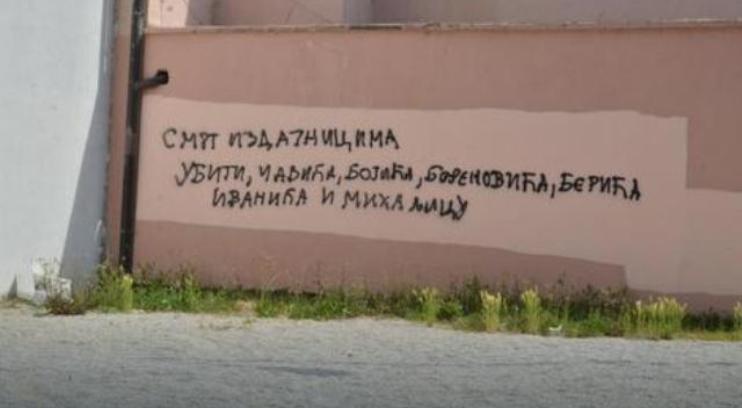 СМРТ ИЗДАЈНИЦИМА
УБИТИ, ЧАВИЋА, БОЈИЋА, БОРЕНОВИЋА, БЕРИЋА
ИВАНИЋА И МИХАЉИЦУ